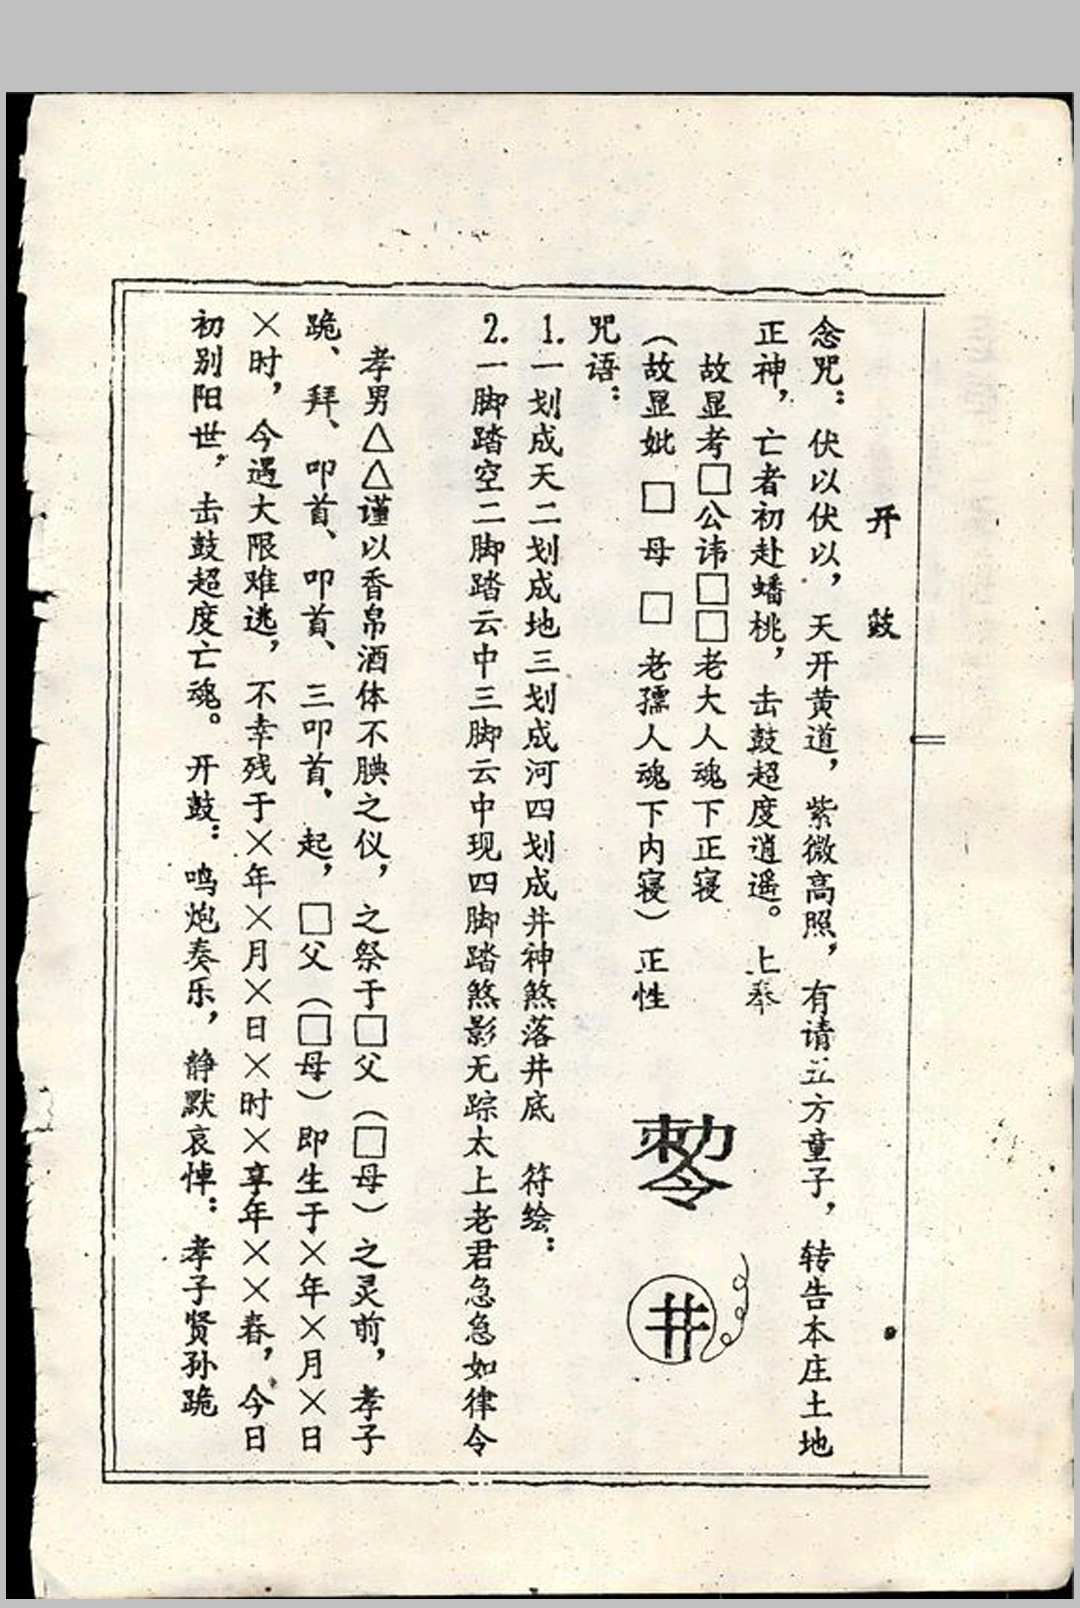 开鼓
念咒：伏以伏以，天开黄道，紫微高照，有请五方童子，转告本庄土地
正神，亡者初赴蟠桃，击鼓超度逍遥。上奉
故显考□公讳□□老大人魂下正寝
（故显妣□母□老孺人魂下内寝）正性
咒语：
1.一划成天二划成地三划成河四划成井神煞落井底 符绘：
敕令
井
2.一脚踏空二脚踏云中三脚云中现四脚踏煞影无踪太上老君急急如律令
孝男△△谨以香帛酒体不腆之仪，之祭于□父（□母）之灵前，孝子
跪、拜、叩首、叩首、三叩首、起，□父（□母）即生于×年×月×日
×时，今遇大限难逃，不幸残于×年×月×日×时×享年××春，今日
初别阳世，击鼓超度亡魂。开鼓：鸣炮奏乐，静默哀悼：孝子贤孙跪